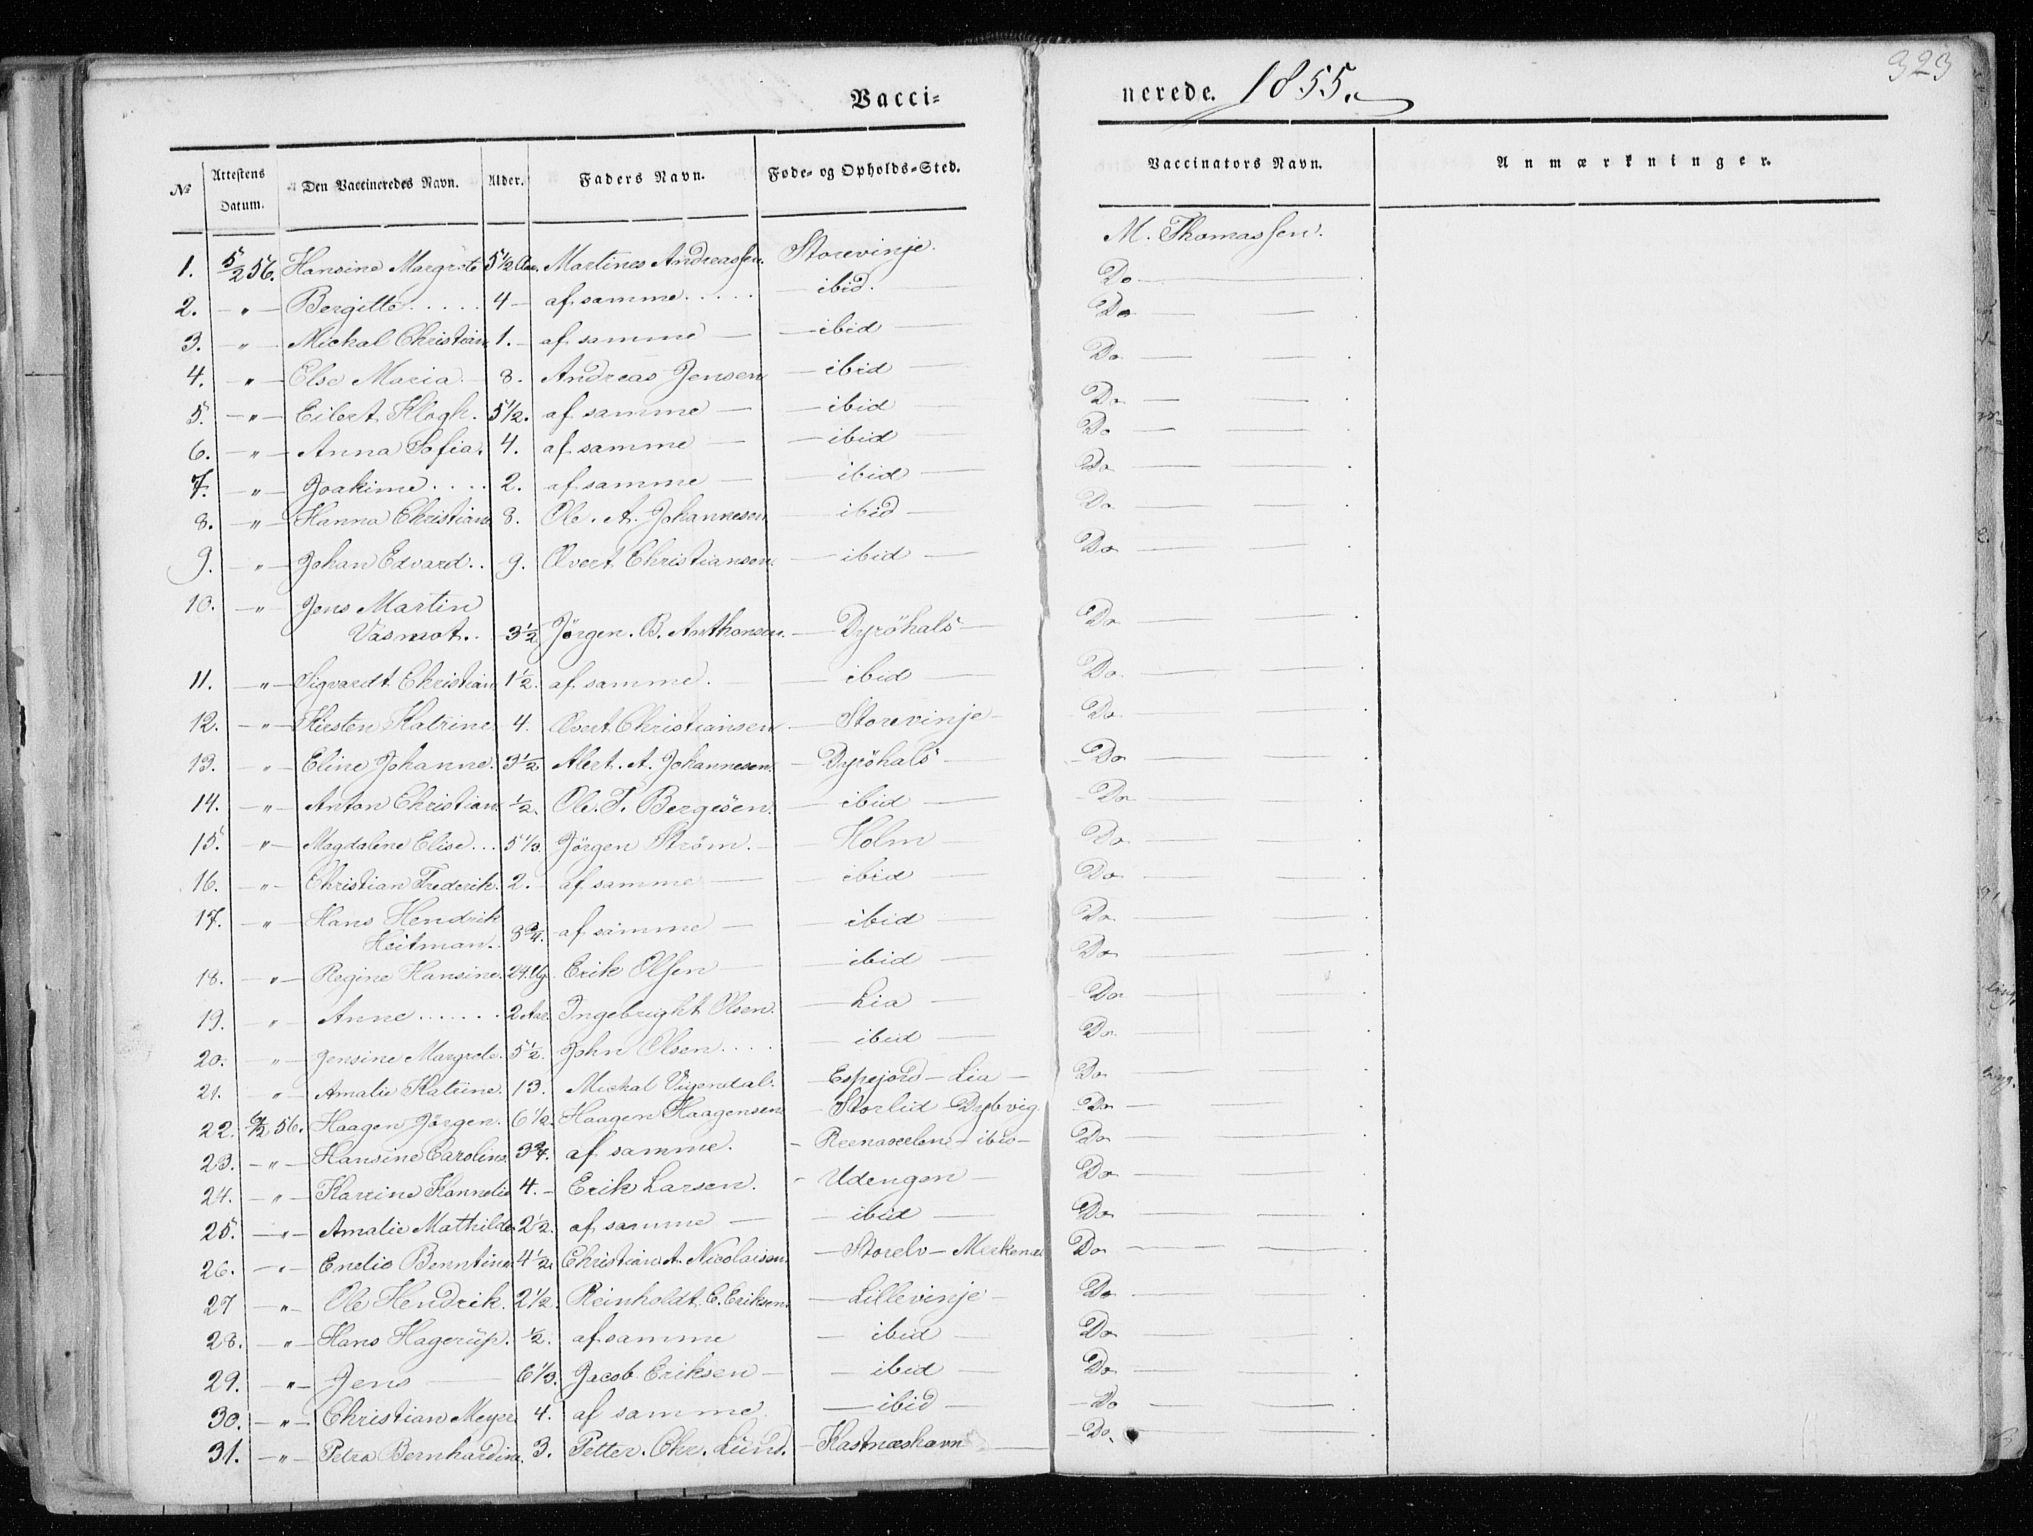 323
Vacci=
nerede. 1855.
No
Attestens Datum.
Den Vaccineredes Navn.
Alder.
Faders Navn.
Føde- og Opholds-Sted.
Vaccinators Navn.
Anmærkninger.
1. 5/2 56. Hansine Margrete 5 1/2 Aar. Martines Andreassen. Storevinje. M. Thomassen.
2. — " — Bergitte ..... 4 — af samme ..... — ibid. — Do —
3. — " — Mickal Christian 1. — af samme — — ibid — Do —
4. — " — Else Maria — 8. Andreas Jensen — ibid — Do —
5. — " — Eilert Klogh. 5 1/2. af samme — — ibid — Do —
6. — " — Anna Sofia. 4. af samme — — ibid — Do —
7. — " — Joakime .... 2. af samme — — ibid — Do —
8. — " — Hanna Christians 8. Ole. A. Johannesen — ibid — Do
9. — " — Johan Edvard .. 9. Overt Christiansen. — ibid — Do —
10. — " Jens Martin
Vasmot .. 3 1/2 Jörgen. B. Anthonsen. — Dyröhals — Do —
11. — " — Sigvardt Christian 1 1/2. af samme. — ibid — Do. —
12. — " — Kirsten Katrine 4. Overt Christiansen — Storevinje — Do —
13. — " — Eline Johanne. 3 1/2 Alert. A. Johannesen. — Dyröhals — Do —
14. — " — Anton Christian. 1/2. Ole. T. Bergesen. — ibid — Do —
15. — " — Magdalene Elise ... 5 1/3. Jörgen Ström. — Holm — Do —
16. — " — Christian Frederik. 2. — af samme — — ibid — Do —
17. — " — Hans Hendrik
Heitman. 8 3/4. af samme — — ibid — Do —
18. — " — Regine Hansine. 24. Ug. Erik Olsen — — ibid — Do —
19. — " — Anne ...... 2 Aar. Ingebright Olsen. — Lia — Do —
20. — " — Jensine Margrete. 5 1/2. John Olsen .... — ibid — Do —
21. — " — Amalie Katrine. 13. Mickal Vigendal. — Espejord — Lia — Do —
22. 6/2 56. Haagen Jörgen. 6 1/2. Haagen Haagensen — Storlid Dybvig. Do —
23. — " — Hansine Caroline. 3 3/4. af samme. — — ibid — Do —
24. — " — Karrine 4. — Erik Larsen. — Udengen — Do —
25. — " — Amalie Mathilde 2 1/2. af samme — — ibid — Do —
26. — " — Enelie Benntine 4 1/2. Christian A. Nicolaisen. — Storelv — Do —
27 — " — Ole Hendrik. 2 1/2. Reinholdt. E. Eriksen. — Lillevinje — Do —
28. — " — Hans Hagerup. 1/2. af samme — ibid — Do —
29. — " — Jens — 6 1/3. Jacob Eriksen — — ibid — Do —
30. — " — Christian Meyer. 4. af samme — ibid — Do —
31. — " — Petra Bernhardine. 3. Petter. Chr. Lund. — Kastnæshavn — Do.